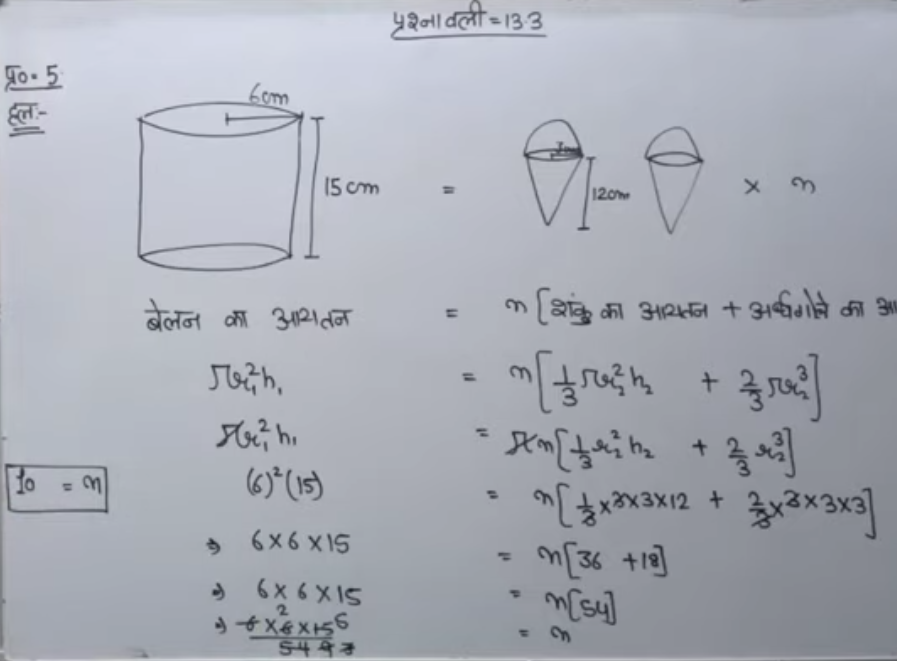 प्रश्नावली = 13.3
प्र०. 5
हल:-
6cm
15cm
=
12cm
× n
बेलन का आयतन = n [शंकु का आयतन + अर्धगोले का आ
πr₁²h₁ = n[1/3 πr₂²h₂ + 2/3 πr₂³]
πr₁²h₁ = πn[1/3 r₂²h₂ + 2/3 r₂³]
10 = n
(6)²(15) = n[1/3 × 3 × 3 × 12 + 2/3 × 3 × 3 × 3]
⇒ 6 × 6 × 15 = n[36 + 18]
⇒ 6 × 6 × 15 = n[54]